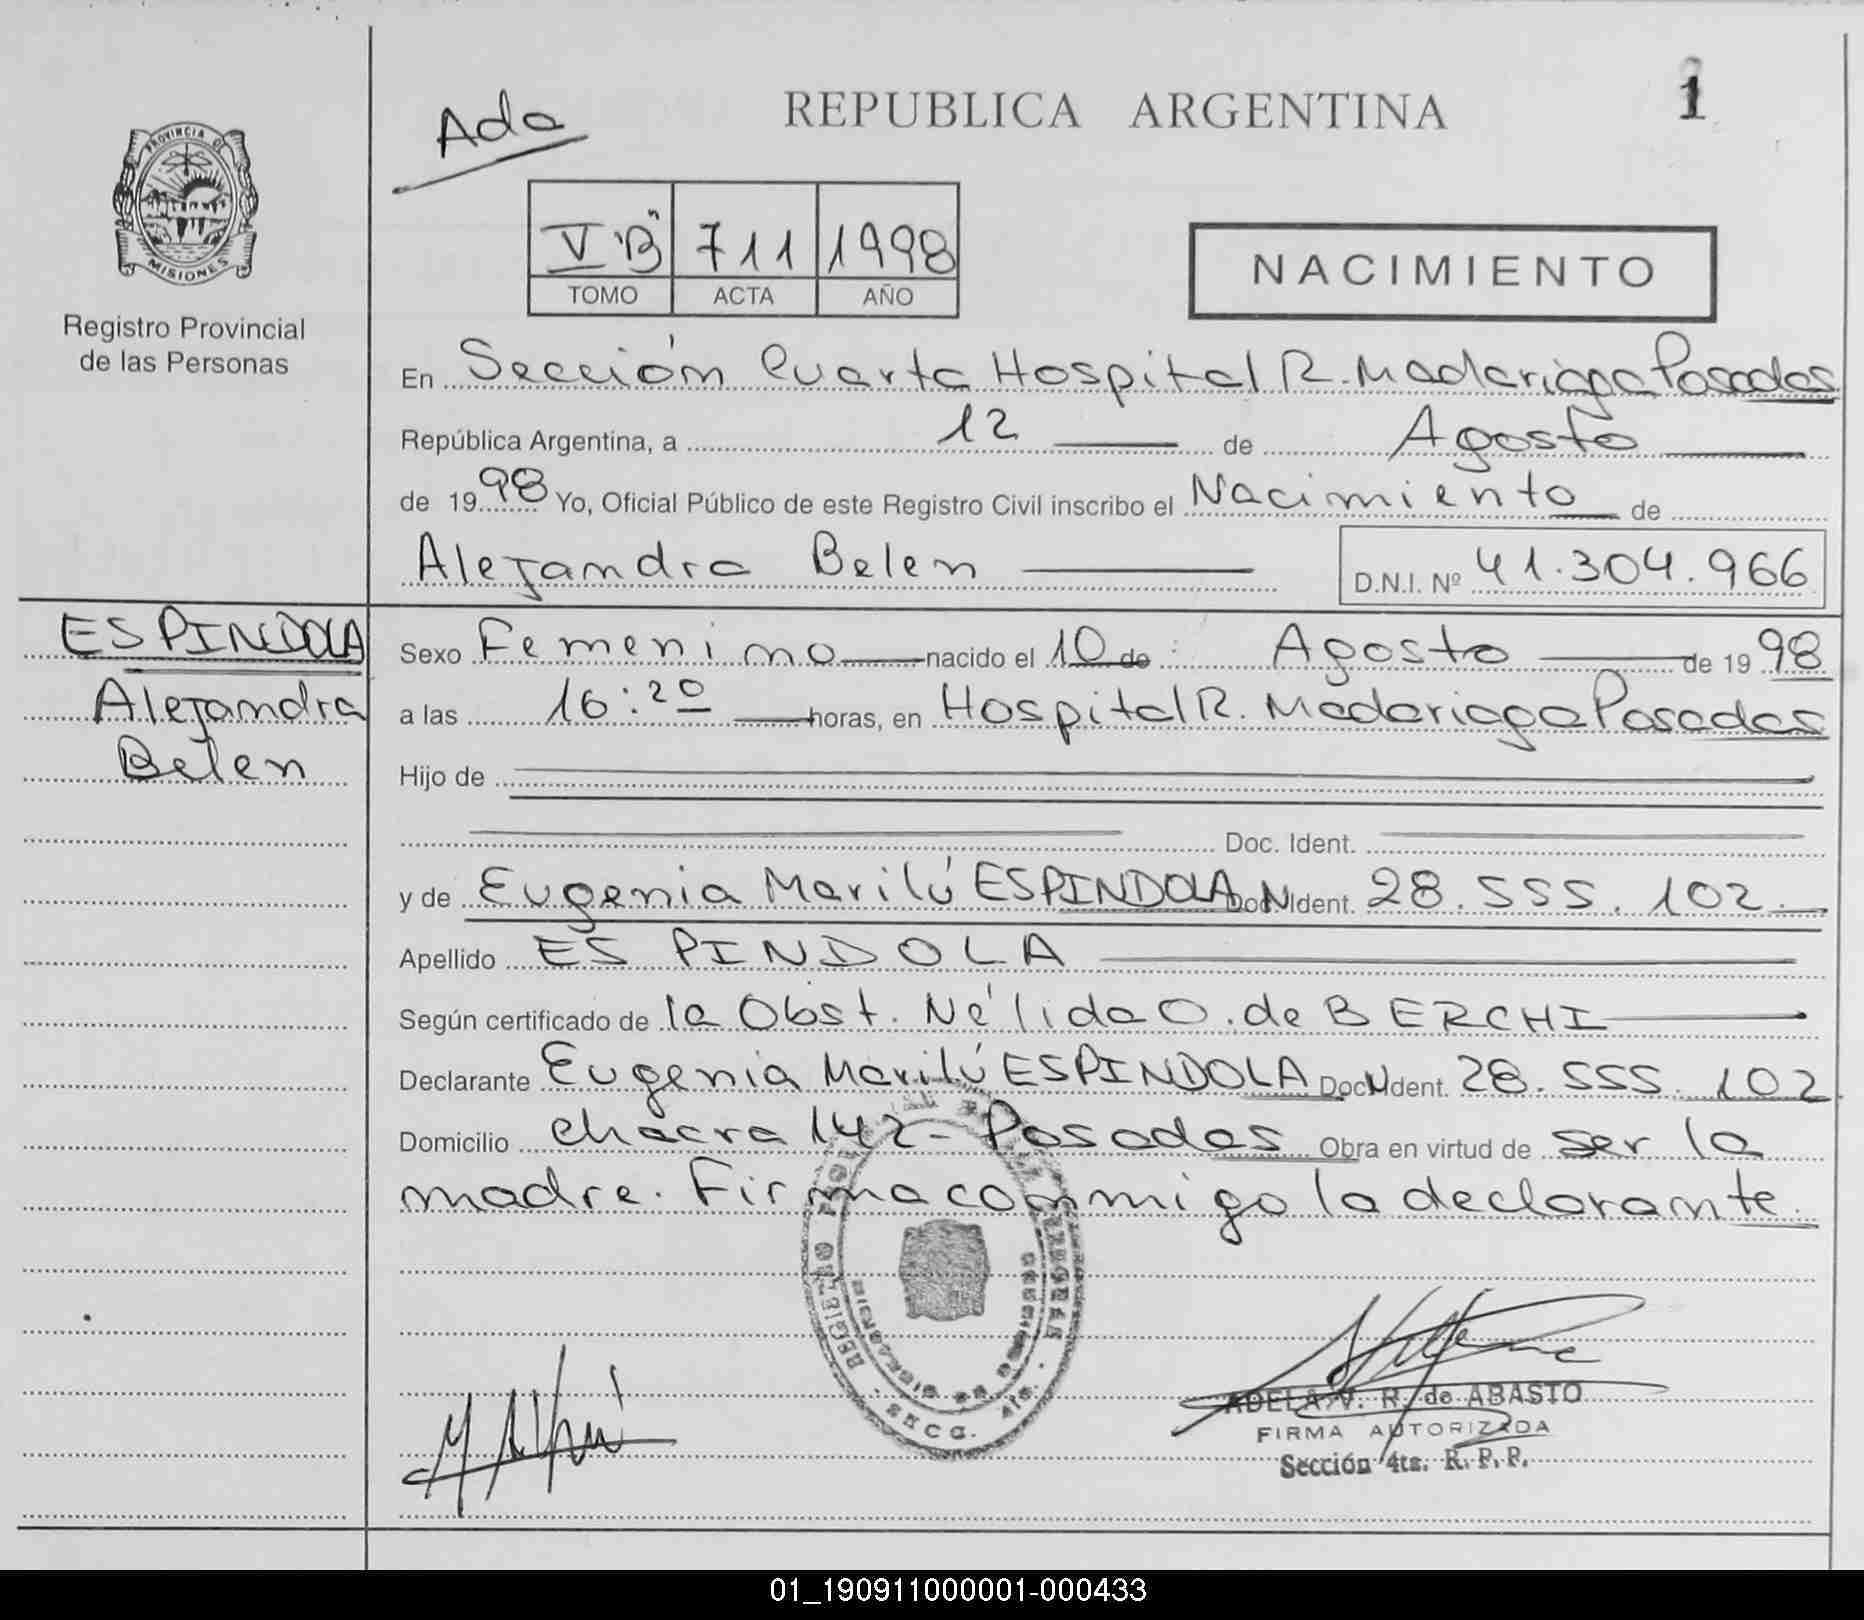 REPUBLICA ARGENTINA
1
Ada
PROVINCIA DE MISIONES
Registro Provincial
de las Personas
V "B" 711 1998
TOMO ACTA AÑO
NACIMIENTO
En Sección Cuarta Hospital R. Madariaga Posadas
República Argentina, a 12 de Agosto
de 1998 Yo, Oficial Público de este Registro Civil inscribo el Nacimiento de
Alejandra Belen D.N.I. Nº 41.304.966
ESPINDOLA
Alejandra
Belen
Sexo Femenino nacido el 10 de Agosto de 1998
a las 16:20 horas, en Hospital R. Madariaga Posadas
Hijo de
Doc. Ident.
y de Eugenia Marilú ESPINDOLA Doc. Ident. 28.555.102.
Apellido ESPINDOLA
Según certificado de la Obst. Nélida O. de BERCHI
Declarante Eugenia Marilú ESPINDOLA Doc. Ident. 28.555.102
Domicilio chacra 142 - Posadas Obra en virtud de ser la
madre. Firma conmigo la declarante.
ADELA V. R. de ABASTO
FIRMA AUTORIZADA
Sección 4ta. R. P. P.
01_190911000001-000433